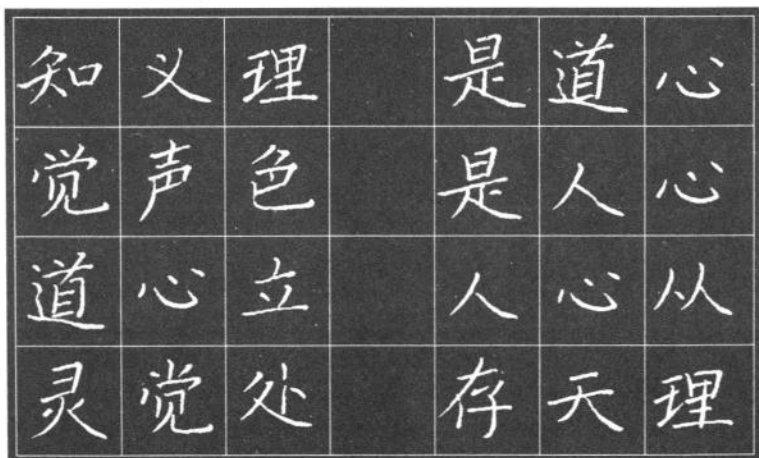 知义理 是道心
觉声色 是人心
道心立 人心从
灵觉处 存天理